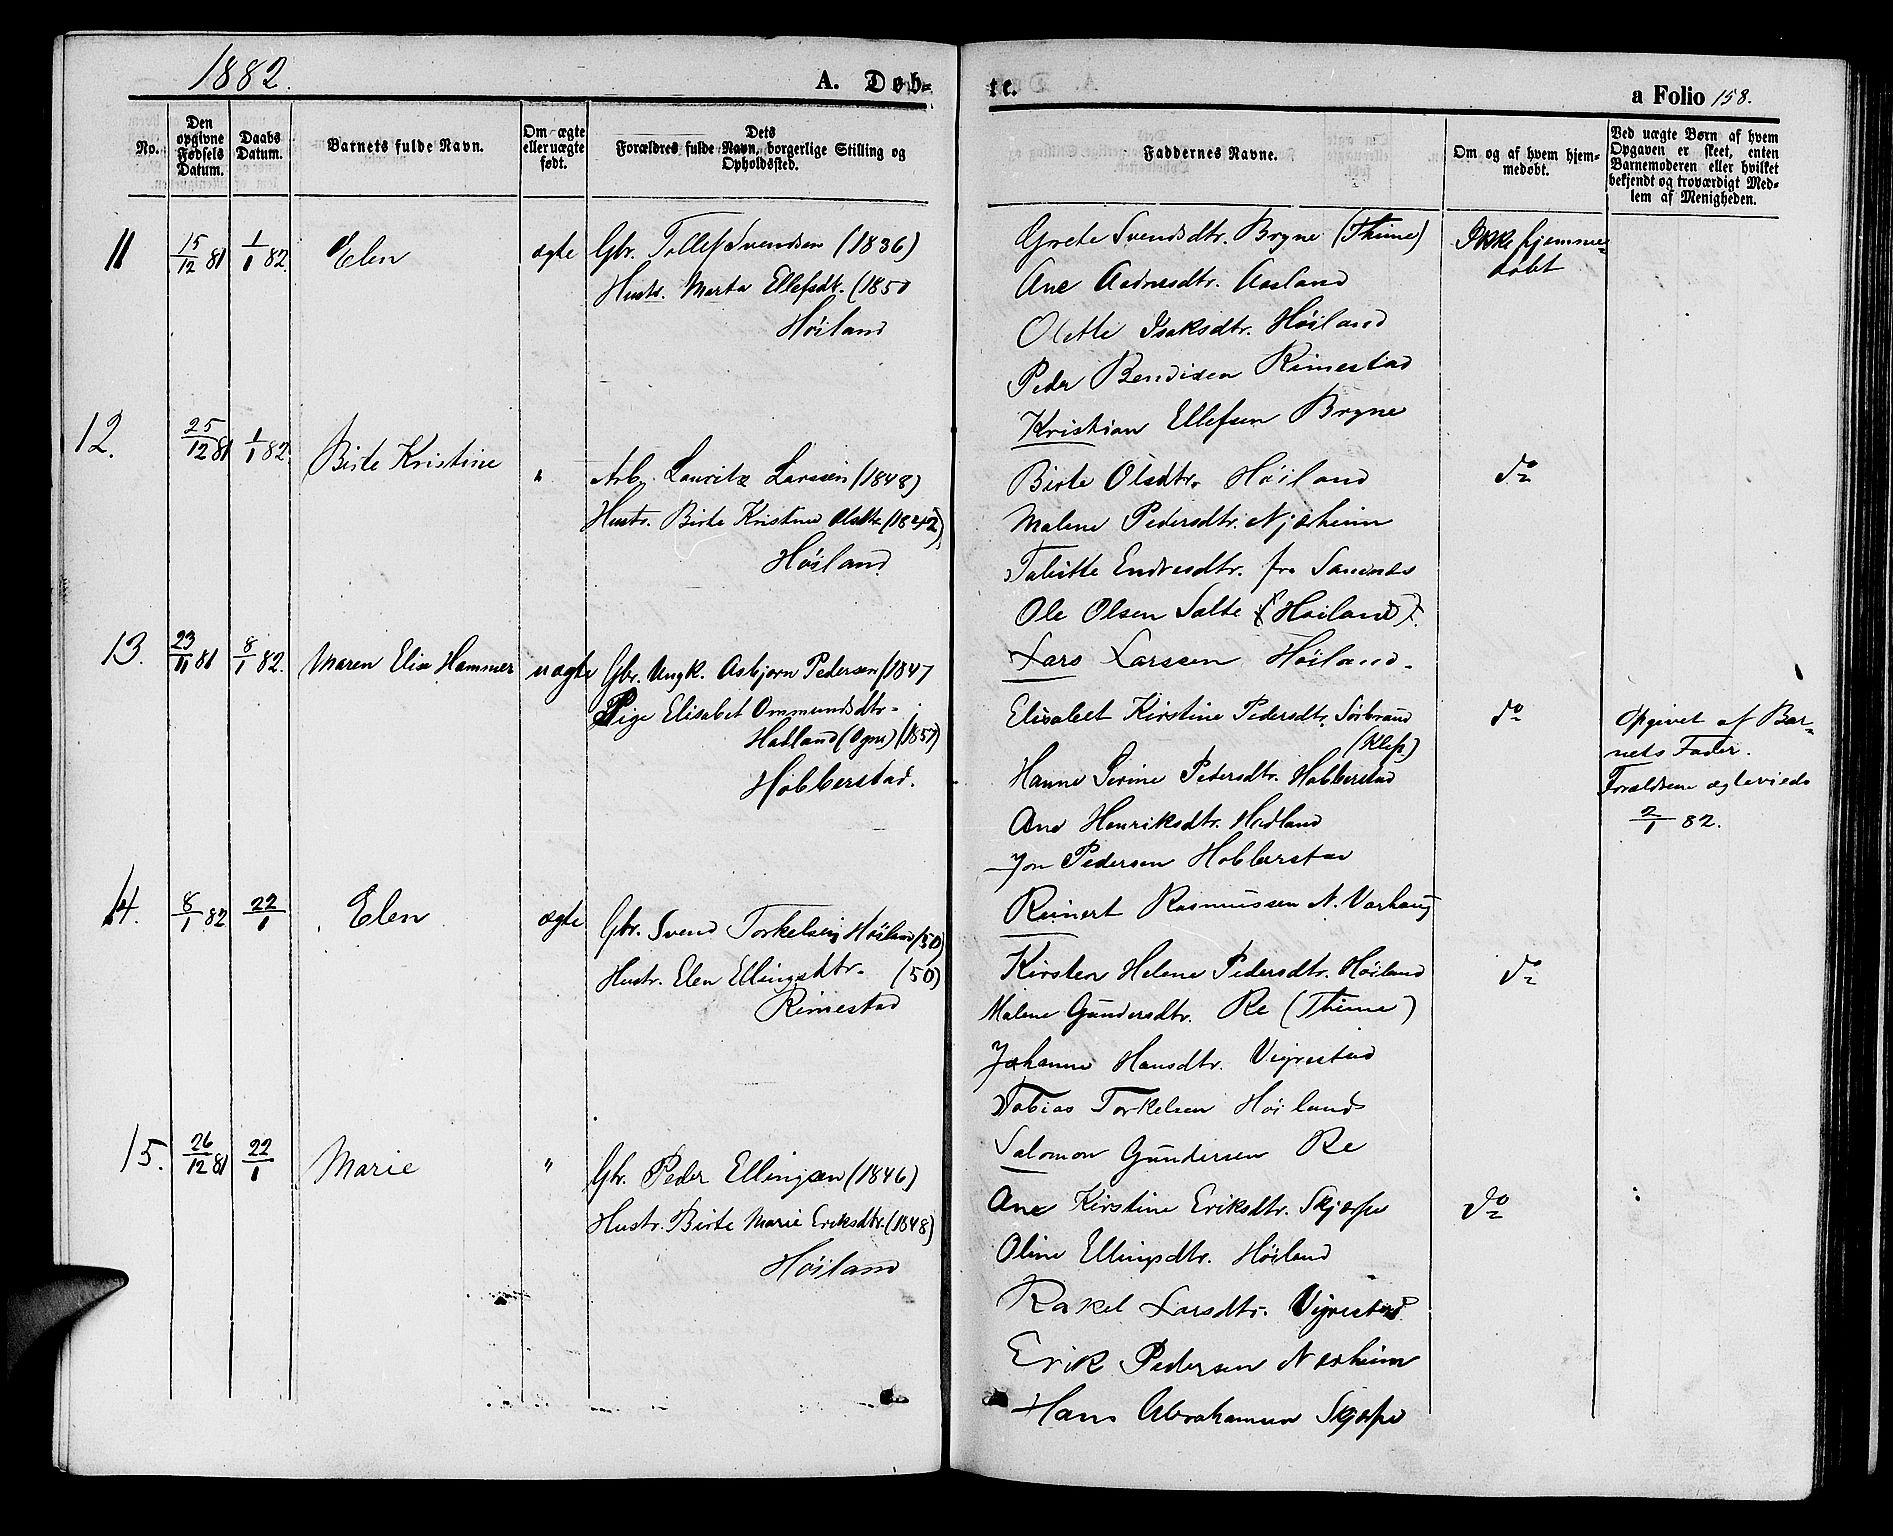 1882.
A. Døb=
No.
Den opgivne Fødsels Datum.
Daabs Datum.
Barnets fulde Navn.
Om ægte eller uægte født.
Dets Forældres fulde Navn, borgerlige Stilling og Opholdsted.
11 15/12 81 1/1 82. Elen ægte Gbr. Tollef Svendsen (1836)
Hustr. Marta Ellefsdtr. (1850
Höiland
12. 25/12 81 1/1 82. Birte Kristine " Arb. Lauritz Larssen (1848)
Hustr. Birte Kristine Olsdtr. (1842)
Höiland
13. 23/11 81 8/1 82. Maren Elise Hammer uægte Gbr. Ungk. Asbjørn Pedersen (1847
Pige Elisabet Ommundsdtr.
Hadland (Ogne) (1857)
Höbberstad.
14. 8/1 82 22/1 Elen ægte Gbr. Svend Torkelsen Höiland (50)
Hustr. Elen Ellingsdtr. (50)
Rimestad
15. 26/12 81 22/1 Marie " Gbr. Peder Ellingsen (1846)
Hustr. Birte Marie Eriksdtr. (1848)
Höiland
te.
a Folio 158.
Faddernes Navne.
Om og af hvem hjem=
medøbt.
Ved uægte Børn af hvem
Opgaven er skeet, enten
Barnemoderen eller hvilket
bekjendt og troværdigt Med=
lem af Menigheden.
Grete Svendsdtr. Bryne (Thime) Ikke hjemme=
døbt
Ane Aadnesdtr. Aasland
Olette Isaksdtr. Höiland
Peder Bendixen Rimestad
Kristian Ellefsen Bryne
Birte Olsdtr. Höiland do
Malene Pedersdtr. Njærheim
Tabitte Endresdtr. fra Sannes
Ole Olsen Salte (Höiland).
Lars Larssen Höiland.
Elisabet Kirstine Pedersdtr. Sörbrand do
(Klep)
Hanne Serine Pedersdtr. Hobberstad
Ane Henriksdtr. Hadland
Jon Pedersen Hobberstad
Reinert Rasmussen N. Varhaug
Opgivet af Bar=
nets Fader.
Forældrene ægteviede
2/1 82.
Kirsten Helene Pedersdtr. Höiland do
Malene Gundersdtr. Re (Thime)
Johanne Hansdtr. Vigrestad
Tobias Torkelsen Höiland
Salomon Gundersen Re
Ane Kirstine Eriksdtr. Skjærpe do
Oline Ellingsdtr. Höiland
Rakel Larsdtr. Vigrestad
Erik Pedersen Nærheim
Hans Abrahamsen Skjærpe